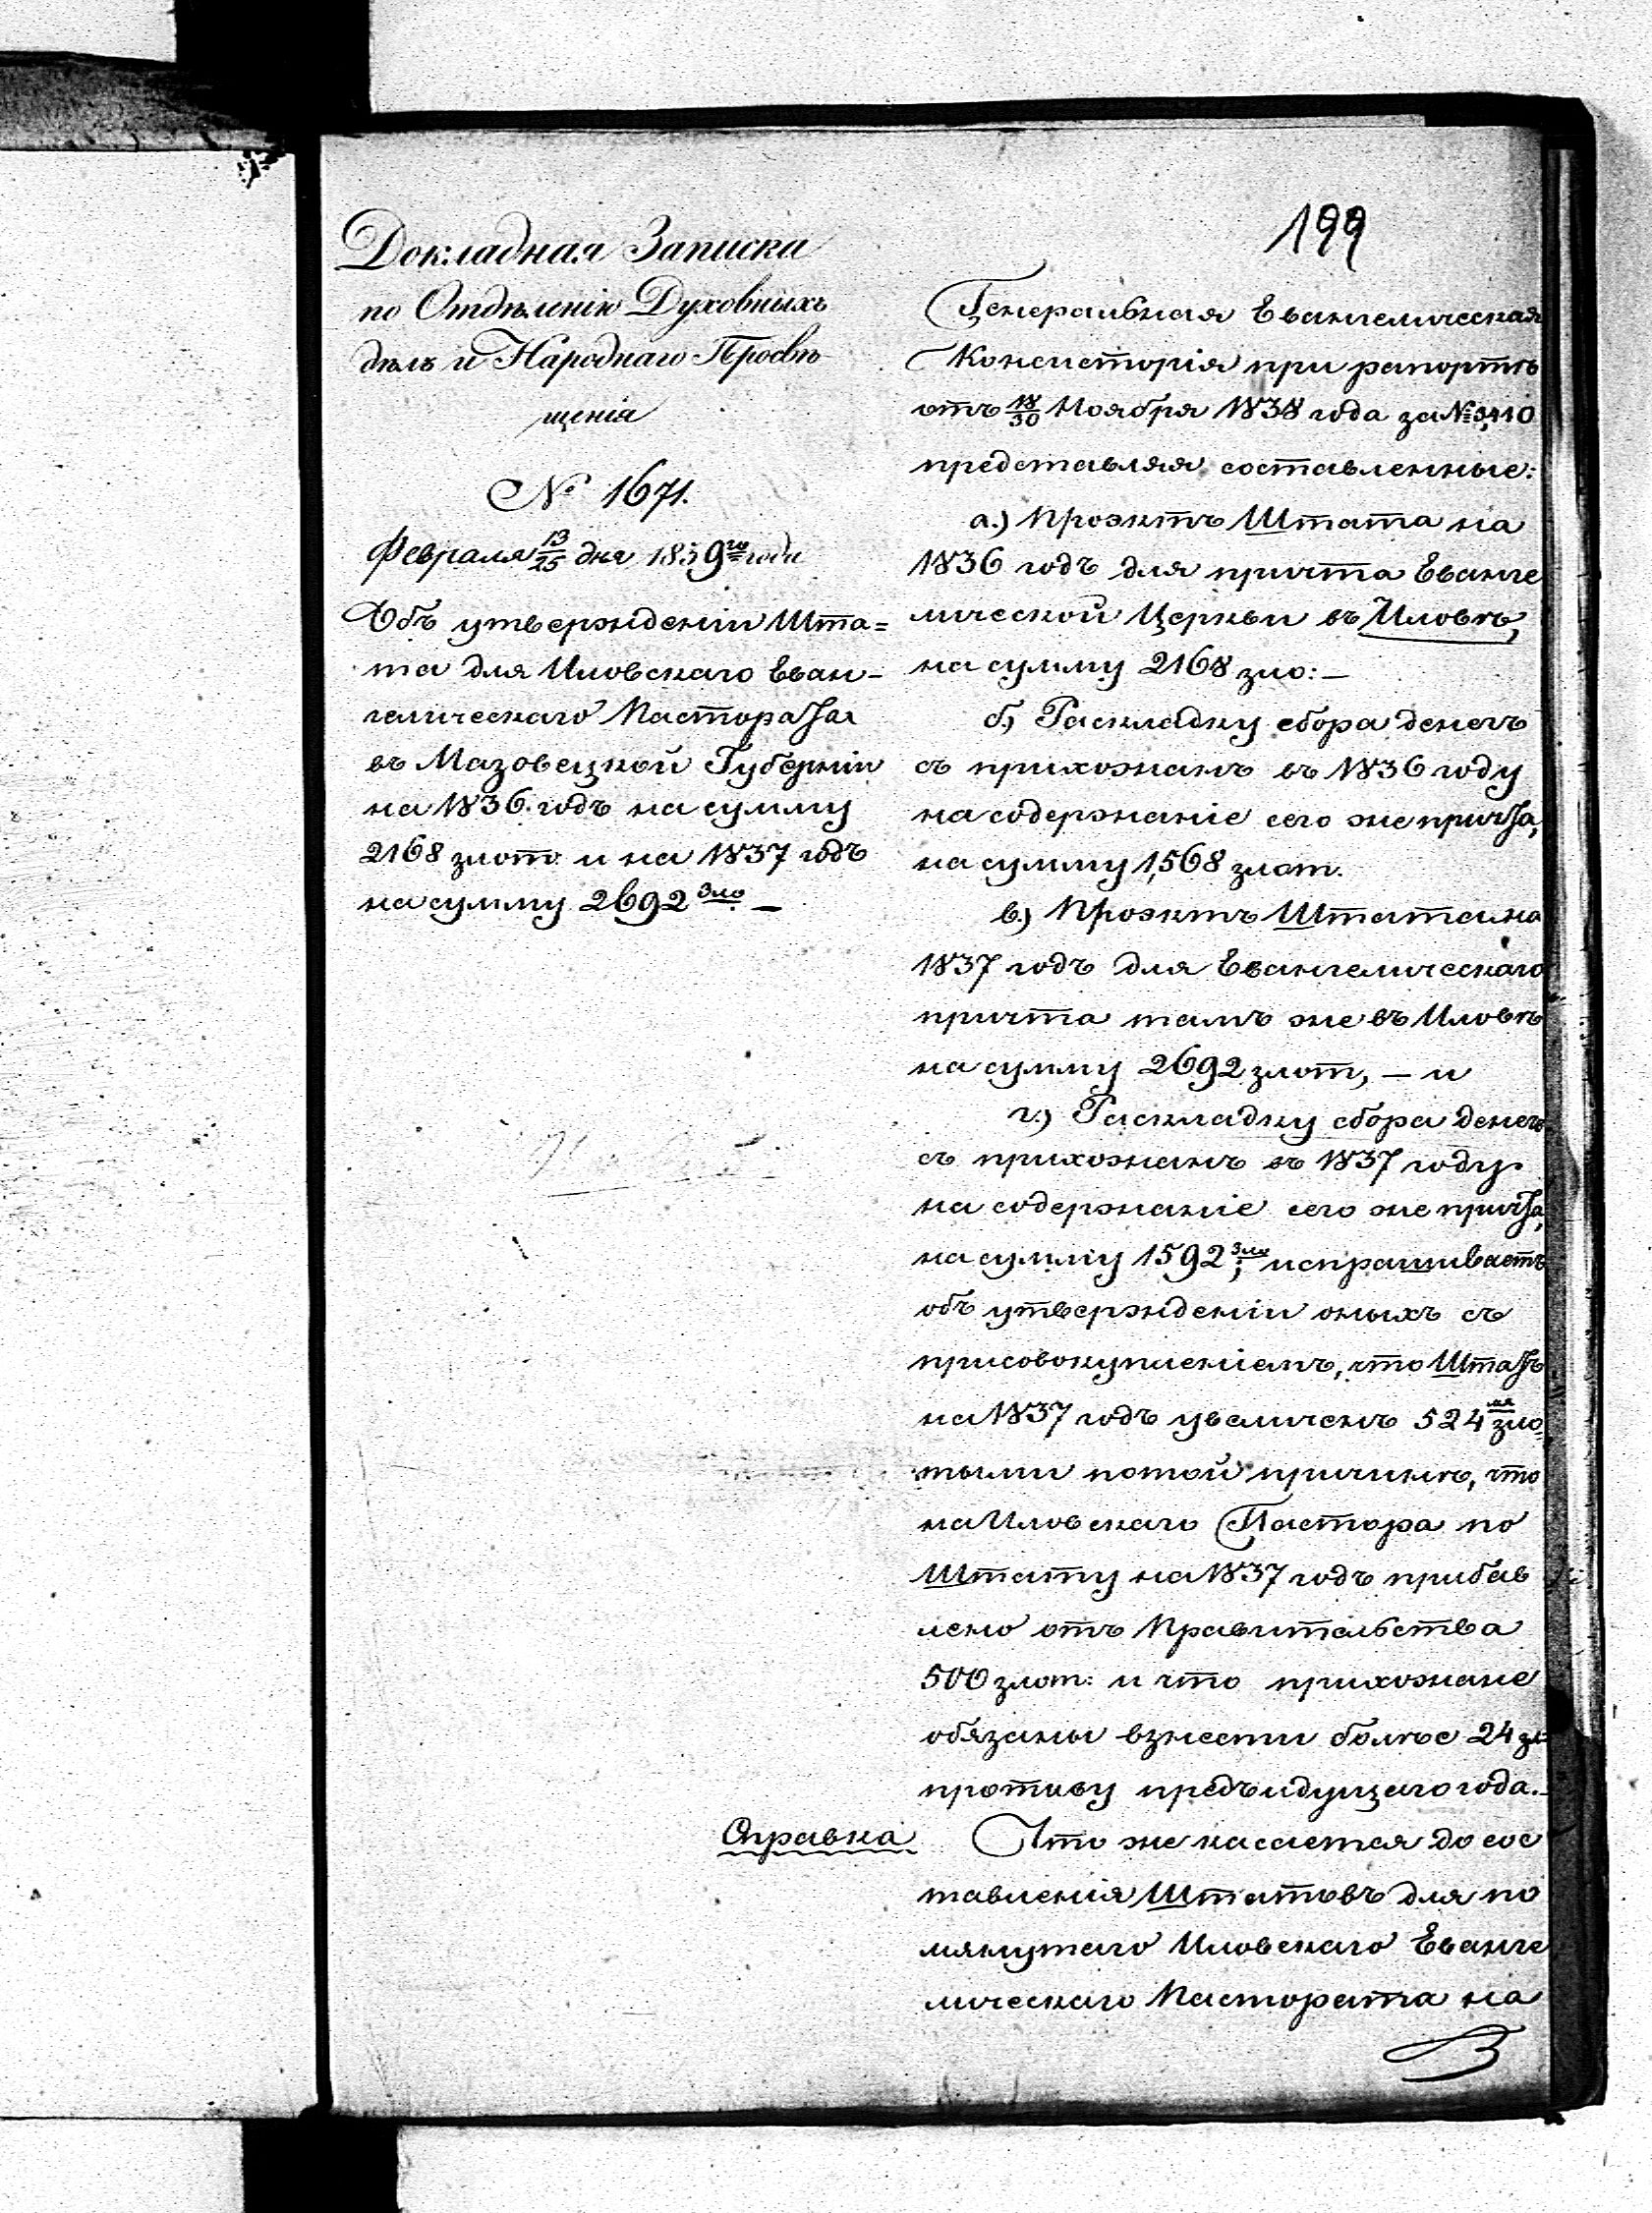 199
Докладная Записка
по Отдѣленію Духовныхъ
дѣлъ и Народнаго Просвѣ-
щенія
№ 1671.
Февраля 13/25 дня 1839го года
Объ утвержденіи Шта=
та для Иловскаго Еван-
гелическаго Пастората
въ Мазовецкой Губерніи
на 1836 годъ на сумму
2168 злот: и на 1837 годъ
на сумму 2692 зло —
Генеральная Евангелическая
Консисторія при рапортѣ
отъ 18/30 Ноября 1838 года за №
представляя составленные:
а.) Проэктъ Штата на
1836 годъ для причта Еванге
лической Церкви въ Иловѣ,
на сумму 2168 зло: —
б.) Раскладку сбора денегъ
съ прихожанъ въ 1836 году
на содержаніе сего же причта,
на сумму 1,568 злот.
в.) Проэктъ Штата на
1837 годъ для Евангелическаго
причта тамъ же въ Иловѣ
на сумму 2692 злот, — и
г.) Раскладку сбора денегъ
съ прихожанъ въ 1837 году
на содержаніе сего же причта,
на сумму 1592 зло; испрашиваетъ
объ утвержденіи оныхъ съ
присовокупленіемъ, что Штатъ
на 1837 годъ увеличенъ 524мя зло=
тыми по той причинѣ, что
на Иловскаго Пастора по
Штату на 1837 годъ прибав
лено отъ Правительства
500 злот: и что прихожане
обязаны взнести болѣе 24 зл=
противу предъидущаго года.—
Справка Что же касается до сос
тавленія Штатовъ для по
мянутаго Иловскаго Еванге
лическаго Пастората на